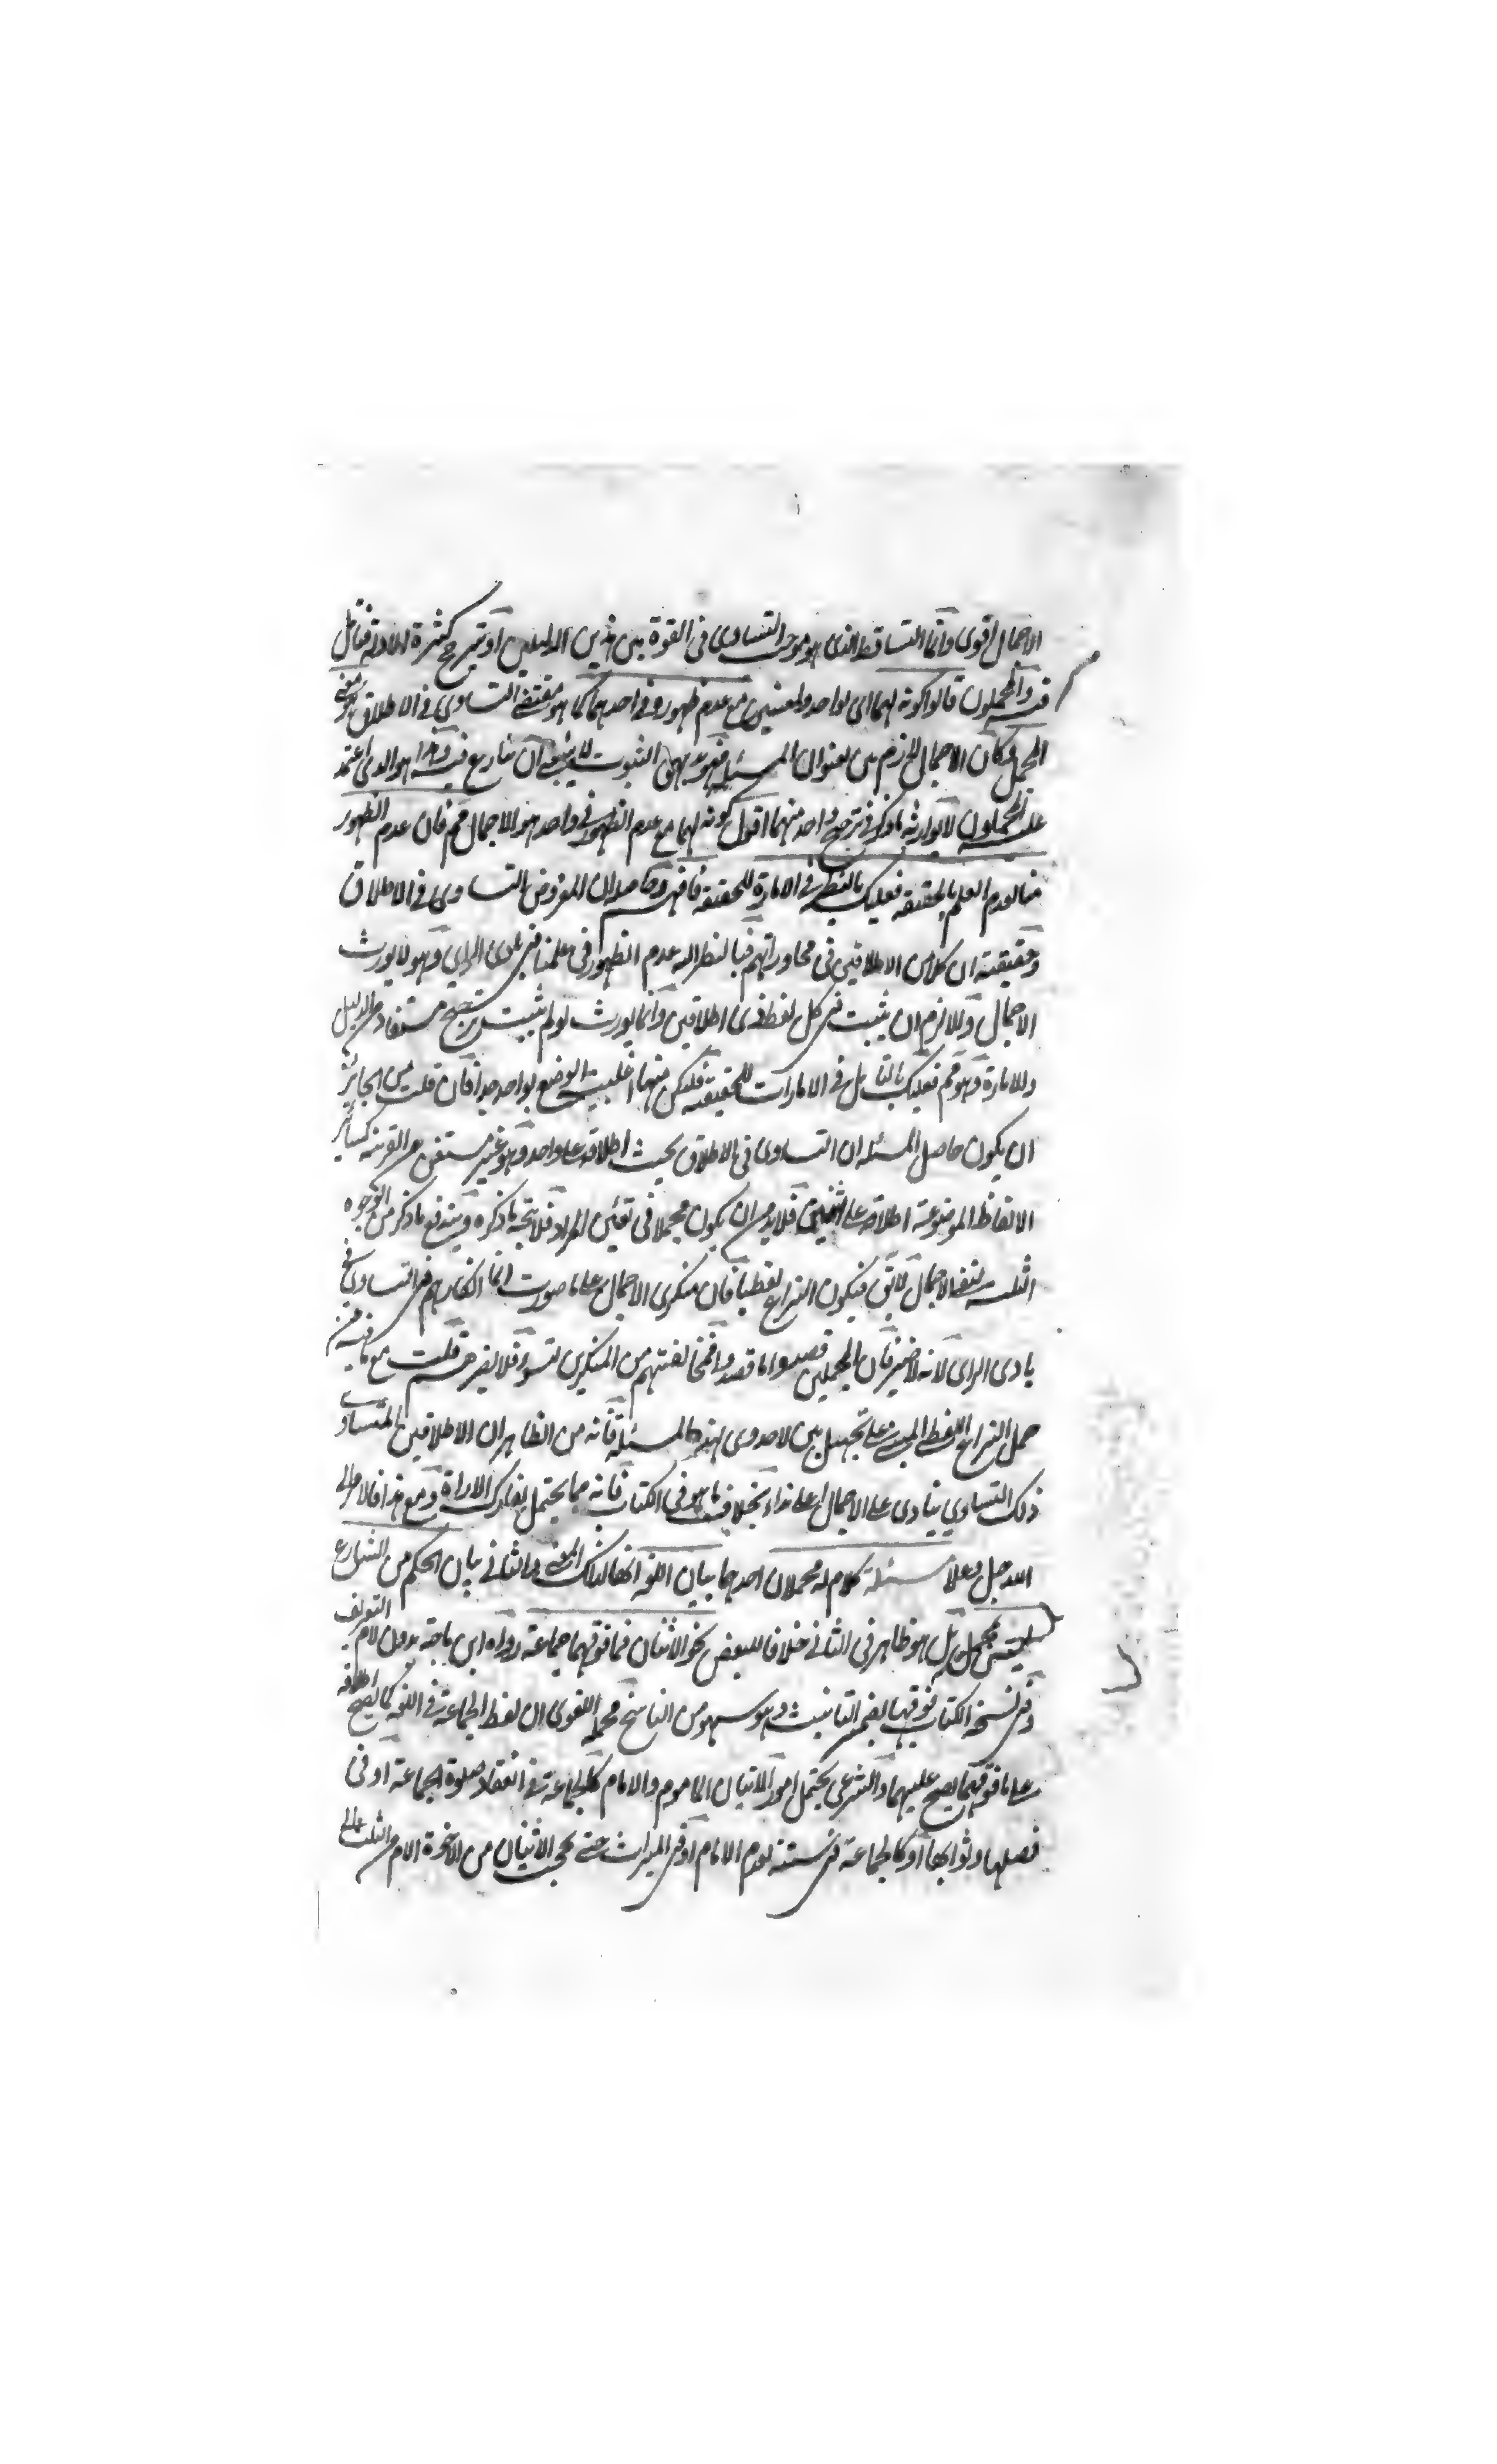 الاجمال اقوى وانما التساقط الذى هو موجب التساوى فى القوة بين هذين الدليلين او ترجح كثرة الادلة فتأمل
فيه والمجملون قالوا كونه لهما اى لواحد ولمعنيين مع عدم ظهوره فى احدهما كما هو مقتضى التساوى فى الاطلاق هو معنى
المجمل وكان الاجمال لازم من عنوان المسئلة فهو بديهى الثبوت لا ينبغى ان ينازع فيه وهذا هو الذى اعتمد
عليه المجملون لا يوازيه ما ذكر فى ترجيح واحد منهما اقول كونه لهما مع عدم الظهور فى واحد هو الاجمال مم فان عدم الظهور
منا لعدم العلم بالحقيقة فعليك بالنظر فى الامارة للحقيقة فافهم وحاصله ان المفروض التساوى فى الاطلاق
وحقيقته ان كلا من الاطلاقين فى محاوراتهم فبالنظر اليه عدم الظهور فى علمنا فى بادى الراى وهو لا يورث
الاجمال وللازم ان يثبت فى كل لفظ ذى اطلاقين وانما يورث لو لم يثبت ترجيح مستفاد من الدليل
والامارة وهو مم فعليك بالتأمل فى الامارات للحقيقة فليكن منها اغلبية الوضع لواحد جدا فان قلت من الجائز
ان يكون حاصل المسئلة ان التساوى فى الاطلاق بحيث اطلاقه على واحد وهو غير مستغن عن القرينة كسائر
الالفاظ الموضوعة اطلاقه على اثنين فلابد من ان يكون مجملا فى تعيين المراد فلا يتجه ما ذكره ويندفع ما ذكر من الوجوه
الثلثة لنفى الاجمال لا يق فيكون النزاع لفظيا فان منكرى الاجمال على ما صورت انما انكارهم فى التساوى فى
بادى الراى لانه لا ضير فان المجملين قصدوا ما قصدوا فمخالفتهم من المنكرين لتسوء فلا يضرهم قلت مع ما فيه من
حمل النزاع اللفظى المبنى على تجهيل بين لا جدوى لهذه المسئلة فانه من الظاهر ان الاطلاقين المتساوى
ذلك التساوى ينادى على الاجمال اعلى نداء بخلاف ما هو فى الكتاب فانه مما يحتمل بعد درك الاراة ومع هذا فالامر الى
الله جل وعلا مسئلة كلام له محملان احدهما بيان اللغة انها لذلك المعنى والثانى بيان الحكم من الشارع
ليس بمجمل بل هو ظاهر فى الثانى خلافا للبعض نحو الاثنان فما فوقهما جماعة رواه ابن ماجة بدون لام التعريف
وفى نسخ الكتاب فوقها بضمير التانيث وهو سهو من الناسخ محمله اللغوى ان لفظ الجماعة فى اللغة كما يصح اطلاقه
على ما فوقهما يصح عليهما والشرعى يحتمل امورا الاثنان الماموم والامام كالجماعة فى انعقاد صلوة الجماعة او فى
فضلها وثوابها او كالجماعة فى سنة تقدم الامام او فى الميراث حتى يحجب الاثنان من الاخوة الام من الثلث الى